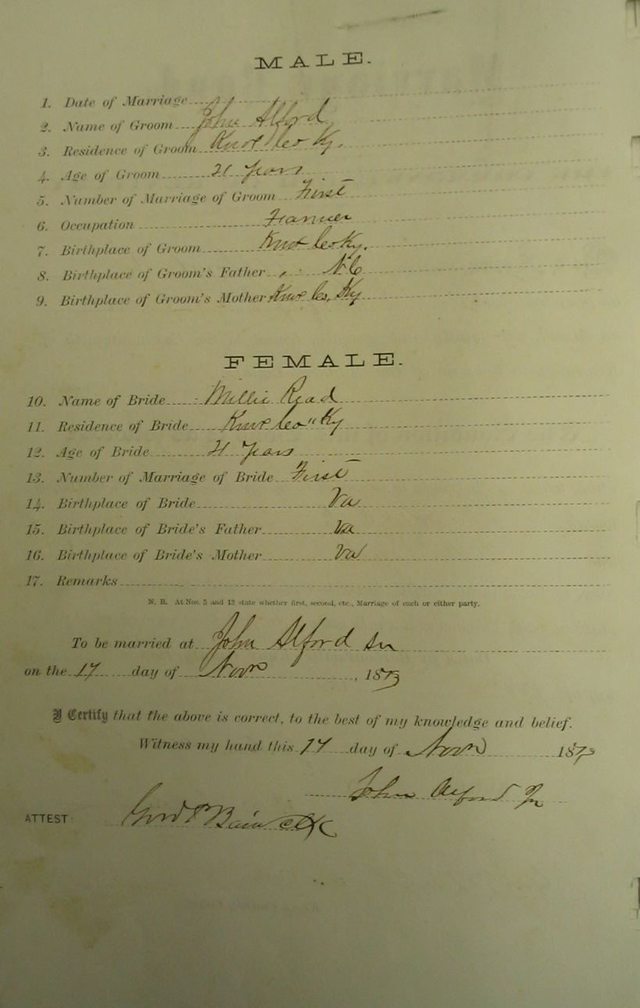 MALE.
1. Date of Marriage
2. Name of Groom John Alford
3. Residence of Groom Knox Co Ky.
4. Age of Groom 21 Years
5. Number of Marriage of Groom First
6. Occupation Farmer
7. Birthplace of Groom Knox Co Ky.
8. Birthplace of Groom's Father N.C
9. Birthplace of Groom's Mother Knox Co, Ky
FEMALE.
10. Name of Bride Millie Read
11. Residence of Bride Knox Co " Ky
12. Age of Bride 21 Years
13. Number of Marriage of Bride First
14. Birthplace of Bride Va
15. Birthplace of Bride's Father Va
16. Birthplace of Bride's Mother Va
17. Remarks
N. B. At Nos. 5 and 13 state whether first, second, etc., Marriage of each or either party.
To be married at John Alford Sr
on the 17 day of Nov , 1873
I Certify that the above is correct, to the best of my knowledge and belief.
Witness my hand this 17 day of Nov 1873
John Alford Jr
ATTEST: